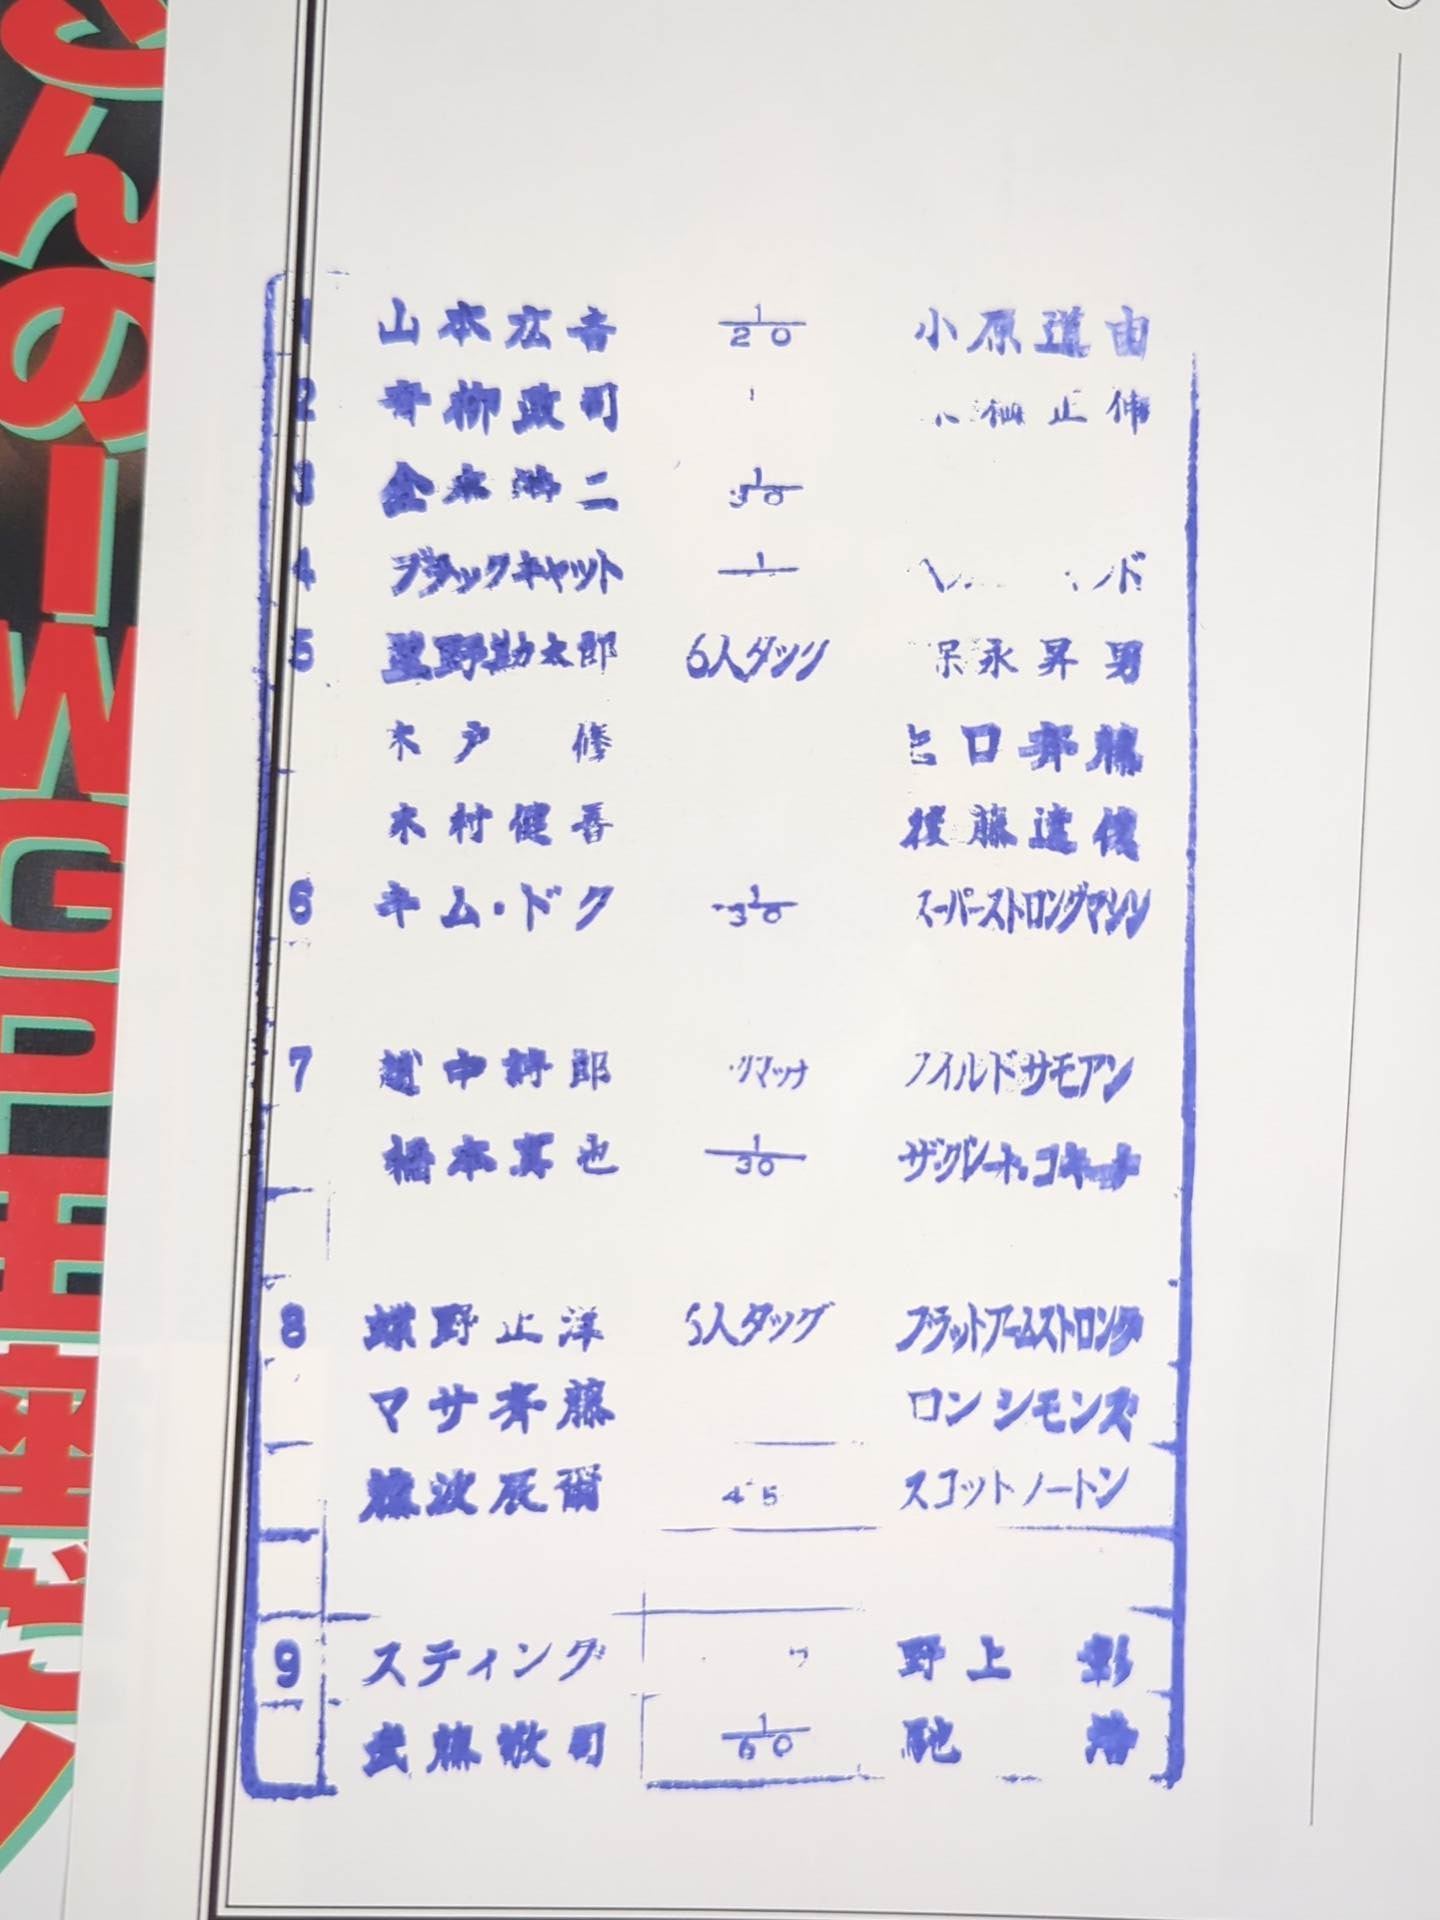 んのIWGP王座
1 山本広吉 1/20 小原道由
2 青柳政司 正伸
3 金本浩二 1/30
4 ブラックキャット 1 ド
5 星野勘太郎 6人タッグ 保永昇男
木戸 修 ヒロ斉藤
木村健吾 後藤達俊
6 キム・ドク 1/30 スーパーストロングマシン
7 越中詩郎 ワイルドサモアン
橋本真也 1/30 ザ・グレート・コキーナ
8 蝶野正洋 6人タッグ ブラットアームストロング
マサ斉藤 ロンシモンズ
藤波辰爾 45 スコットノートン
9 スティング 野上 彰
武藤敬司 1/60 馳 浩